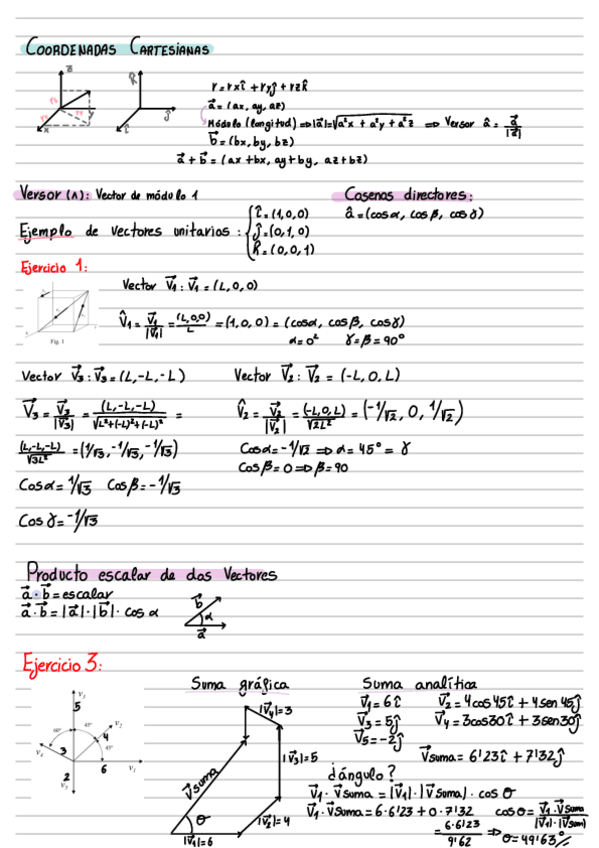 COORDENADAS CARTESIANAS
z
x
y
k̂
î
ĵ
r = rxî + ryĵ + rzk̂
a⃗ = (ax, ay, az)
Módulo (longitud) ⇒ |a⃗| = √a²x + a²y + a²z ⇒ Versor â = a⃗/|a⃗|
b⃗ = (bx, by, bz)
a⃗ + b⃗ = (ax + bx, ay + by, az + bz)
Versor (Λ): Vector de módulo 1
Cosenos directores:
â = (cosα, cosβ, cosγ)
Ejemplo de vectores unitarios: { î = (1,0,0)
ĵ = (0,1,0)
k̂ = (0,0,1)
Ejercicio 1:
Fig. 1
Vector V⃗1: V⃗1 = (L,0,0)
V̂1 = V⃗1/|V⃗1| = (L,0,0)/L = (1,0,0) = (cosα, cosβ, cosγ)
α = 0° γ = β = 90°
Vector V⃗3: V⃗3 = (L,-L,-L)
V⃗3 = V⃗3/|V⃗3| = (L,-L,-L)/√L²+(-L)²+(-L)² =
(L,-L,-L)/√3L² = (1/√3, -1/√3, -1/√3)
Cosα = 1/√3 Cosβ = -1/√3
Cosγ = -1/√3
Vector V⃗2: V⃗2 = (-L,0,L)
V̂2 = V⃗2/|V⃗2| = (-L,0,L)/√2L² = (-1/√2, 0, 1/√2)
Cosα = -1/√2 ⇒ α = 45° = γ
Cosβ = 0 ⇒ β = 90
Producto escalar de dos Vectores
a⃗ · b⃗ = escalar
a⃗ · b⃗ = |a⃗| · |b⃗| · cos α
b⃗
α
a⃗
Ejercicio 3:
5
v₂
60°
45°
4
45°
3
v₄
6
v₁
2
v₅
Suma gráfica
|V⃗4|=3
|V⃗3|=5
V⃗suma
θ
|V⃗2|=4
|V⃗1|=6
Suma analítica
V⃗1 = 6î V⃗2 = 4cos45î + 4sen45ĵ
V⃗3 = 5ĵ V⃗4 = 3cos30î + 3sen30ĵ
V⃗5 = -2ĵ
V⃗suma = 6'123î + 7'32ĵ
¿ángulo?
V⃗1 · V⃗suma = |V⃗1| · |V⃗suma| · cos θ
V⃗1 · V⃗suma = 6·6'123 + 0·7'32 cosθ = V⃗1 · V⃗suma/|V⃗1| · |V⃗suma|
= 6·6'123/9'62 ⇒ θ = 49'63°//